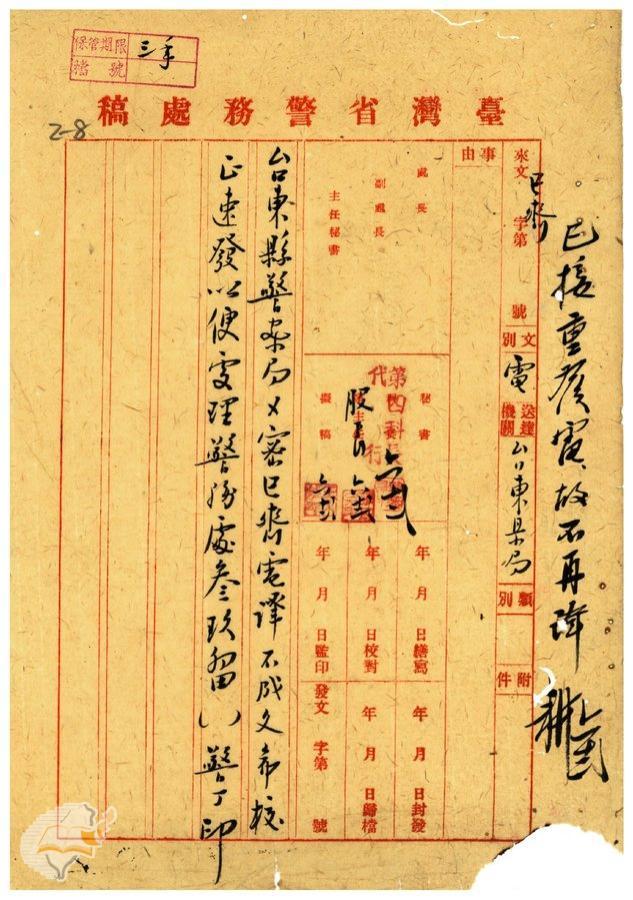 保管期限 三年
檔號
2-8
臺灣省警務處稿
已接重發電故不再譯
來文 巳齊 字第 號
文別 電
送達機關 台東縣局
類別
附件
事由
處長
副處長
主任秘書
秘書
第四科長
代行
股長
擬稿
年 月 日繕寫
年 月 日校對
年 月 日監印
年 月 日封發
年 月 日歸檔
發文 字第 號
台東縣警察局 密巳齊電譯不成文希校
正速發以便處理警務處叁玖留()警丁印